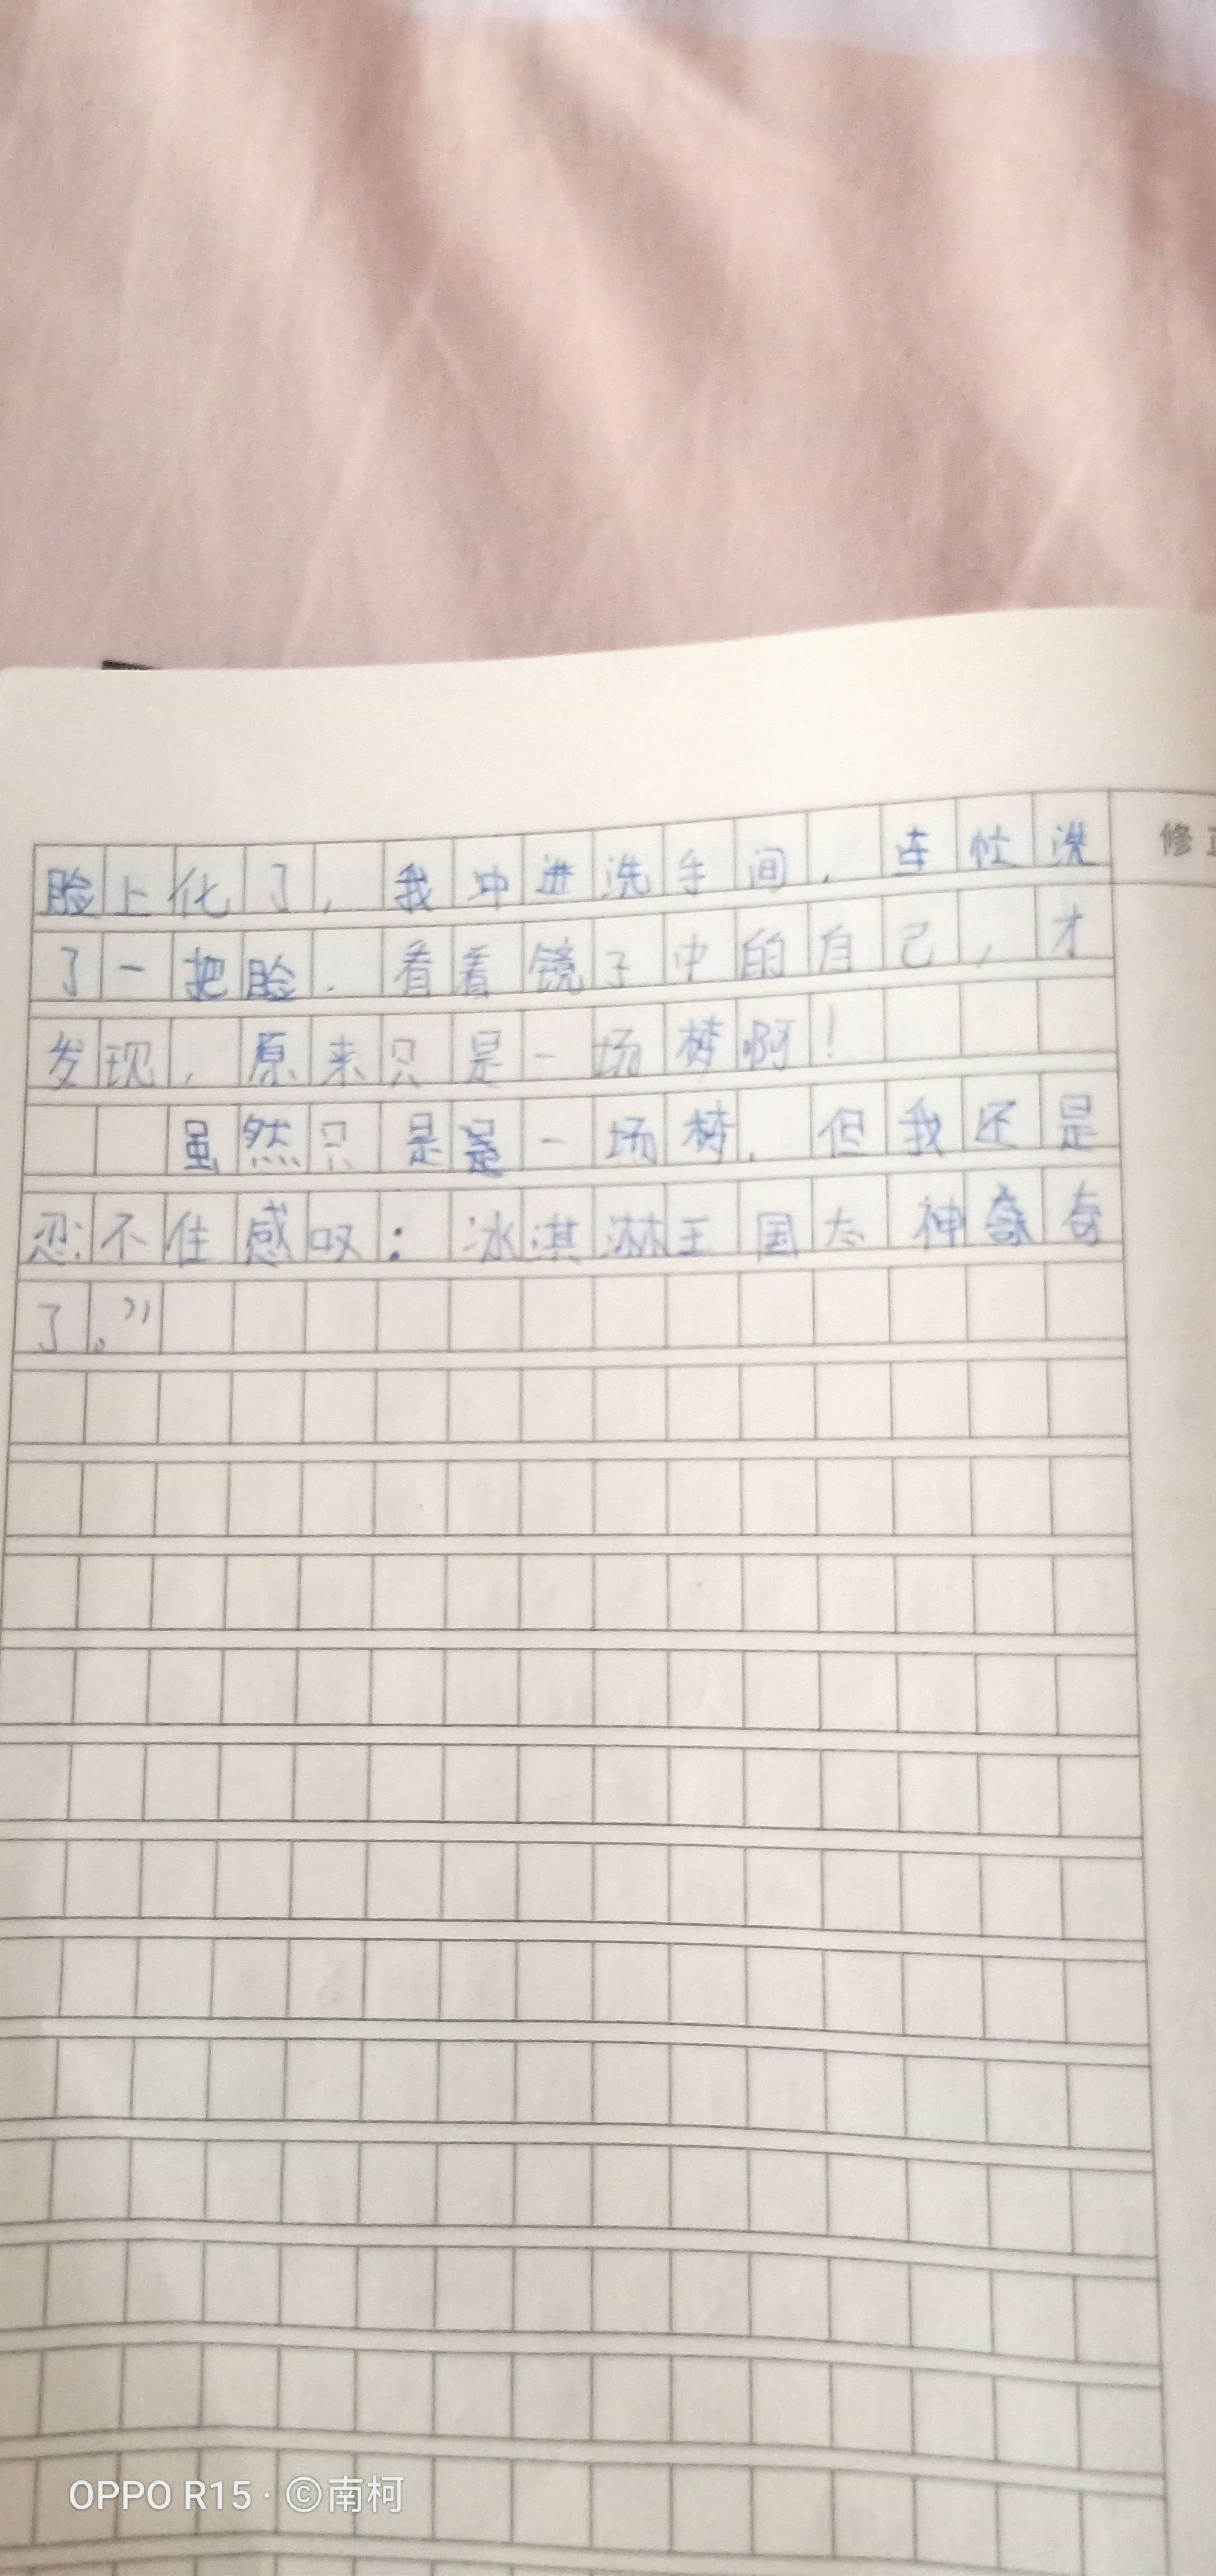 脸上化了,我冲进洗手间,连忙洗
了一把脸.看看镜子中的自己,才
发现,原来只是一场梦啊!
虽然只是是一场梦,但我还是
忍不住感叹:冰淇淋王国太神奇
了。”
修正
OPPO R15·©南柯